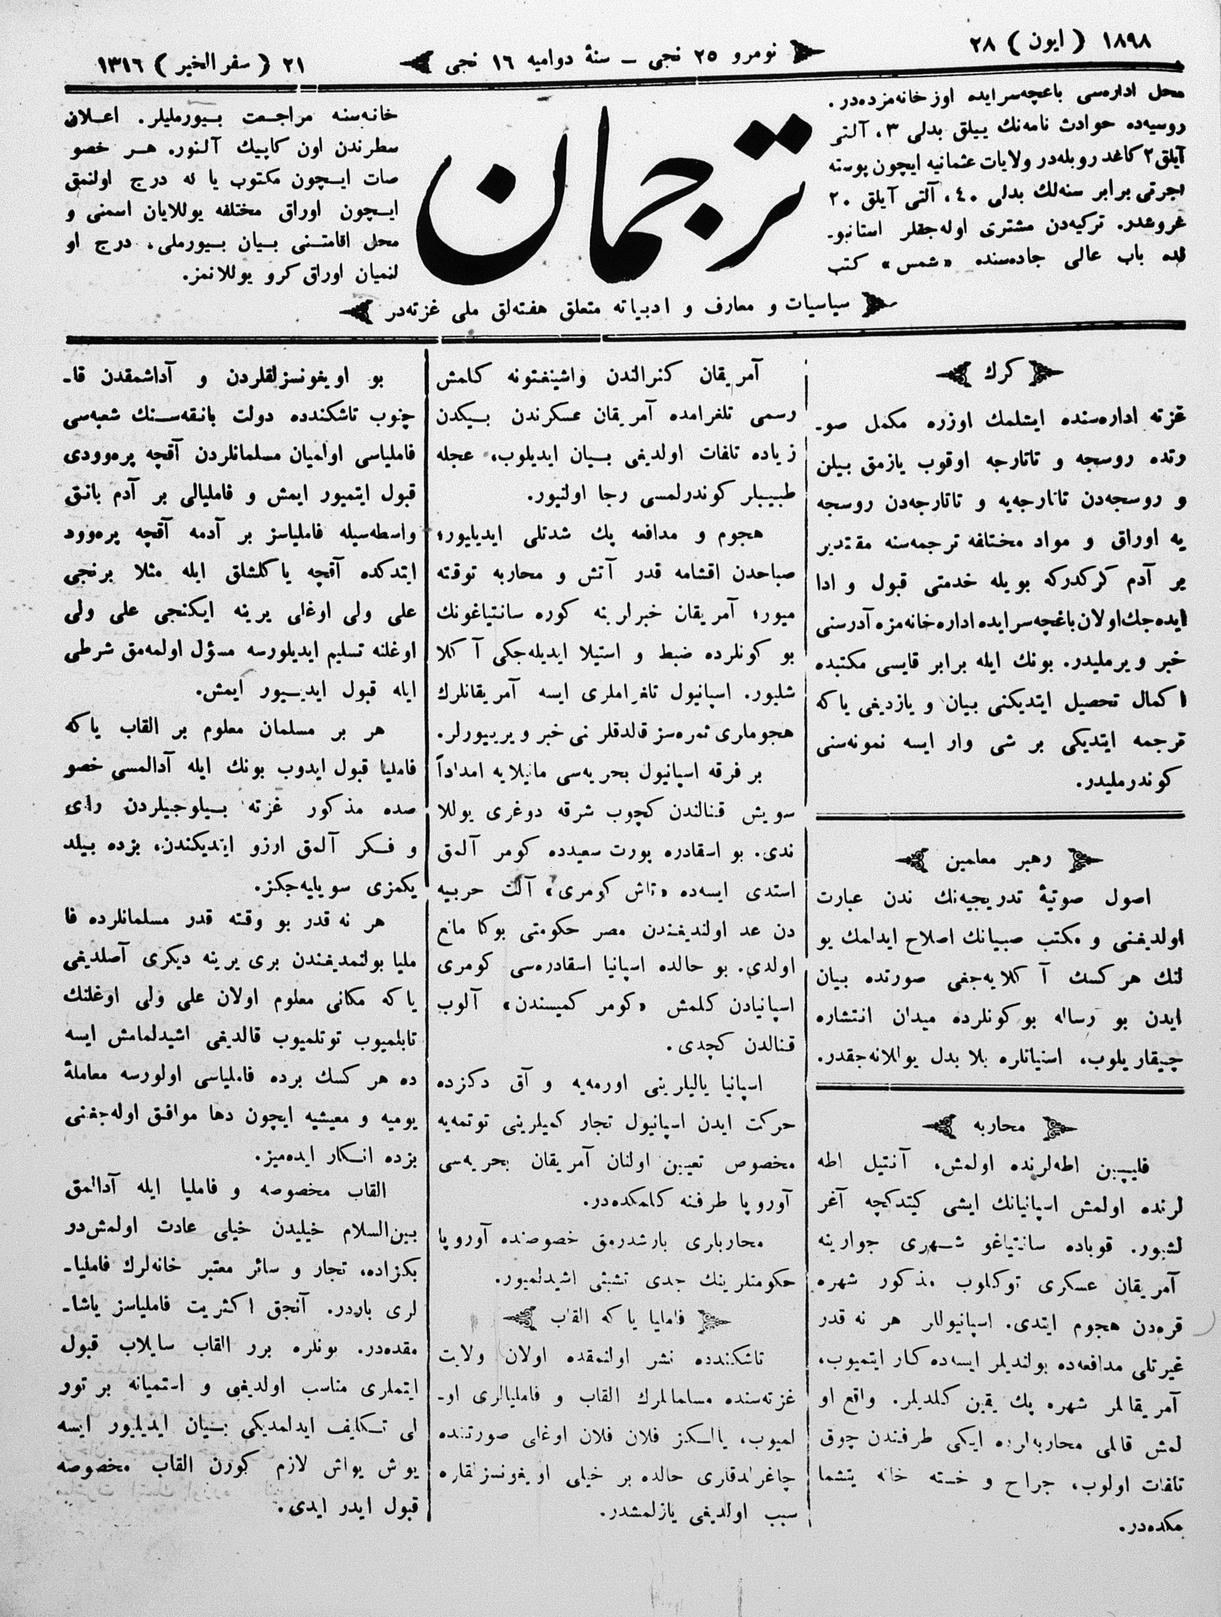 ١٨٩٨ ( ايون ) ٢٨
نومرو ٢٥ نجى ــ سنۀ دواميه ١٦ نجى
٢١ ( سفر الخير ) ١٣١٦
محل اداره‌سى باغچه‌سرايده اوز خانه‌مزده‌در.
روسيه‌ده حوادث نامه‌نك ييلق بدلى ٣، آلتى
آيلق ٢ كاغد روبله‌در ولايات عثمانيه ايچون پوسته
اجرتى برابر سنه‌لك بدلى ٤٠، آلتى آيلق ٢٠
غروشدر. تركيه‌دن مشترى اوله‌جقلر استانبو-
لده باب عالى جاده‌سنده «شمس» كتب
ترجمان
خانه‌سنه مراجعت بيورمليلر. اعلان
سطرندن اون كاپيك آلنور. هر خصو
صات ايچون مكتوب يا له درج اولنمق
ايچون اوراق مختلفه يوللايان اسمنى و
محل اقامتنى بيان بيورملى، درج او
لنميان اوراق كرو يوللانمز.
سياسيات و معارف و ادبياته متعلق هفته‌لق ملى غزته‌در
كرك
غزته اداره‌سنده ايشلمك اوزره مكمل صو-
رتده روسجه و تاتارجه اوقوب يازمق بيلن
و روسجه‌دن تاتارجه‌يه و تاتارجه‌دن روسجه
يه اوراق و مواد مختلفه ترجمه‌سنه مقتدر
بر آدم كركدركه بويله خدمتى قبول و ادا
ايده‌جك اولان باغچه‌سرايده اداره‌خانه‌مزه آدرسنى
خبر ويرمليدر. بونك ايله برابر قايسى مكتبده
اكمال تحصيل ايتديكنى بيان و يازديغى ياكه
ترجمه ايتديكى بر شى وار ايسه نمونه‌سنى
كوندرمليدر.
رهبر معلمين
اصول صوتيۀ تدريجيه‌نك ندن عبارت
اولديغنى و مكتب صبيانك اصلاح ايدلمك يو
لنك هر كسك آكلايه‌جغى صورتده بيان
ايدن بو رساله بو كونلرده ميدان انتشاره
چيقاريلوب، استيانلره بلا بدل يوللانه‌جقدر.
محاربه
فليپين اطه‌لرنده اولمش، آنتيل اطه
لرنده اولمش اسپانيانك ايشى كيتدكچه آغر
لشيور. قوباده سانتياغو شهرى جوارينه
آمريقان عسكرى توكلوب مذكور شهره
قره‌دن هجوم ايتدى. اسپانيوللر هر نه قدر
غيرتلى مدافعه‌ده بولنديلر ايسه‌ده كار ايتميوب،
آمريقالمر شهره پك يقين كلديلر. واقع او
لمش قانلى محاربه‌لرده ايكى طرفندن چوق
تلفات اولوب، جراح و خسته خانه يتشما
مكده‌در.
آمريقان كنرالندن واشينغتونه كلمش
رسمى تلغرامده آمريقان عسكرندن بيكدن
زياده تلفات اولديغى بيان ايديلوب، عجله
طبيبلر كوندرلمسى رجا اولنيور.
هجوم و مدافعه پك شدتلى ايديليور؛
صباحدن اقشامه قدر آتش و محاربه توقته
ميور؛ آمريقان خبرلرينه كوره سانتياغونك
بو كونلرده ضبط و استيلا ايديله‌جكى آكلا
شليور. اسپانيول تلغراملرى ايسه آمريقانلرك
هجوملرى ثمره‌سز قالدقلر نى خبر ويرييورلر.
بر فرقه اسپانيول بحريه‌سى مانيلايه امداداً
سويش قنالندن كچوب شرقه دوغرى يوللا
ندى. بو اسقادره پورت سعيدده كومر آلمق
استدى ايسه‌ده «تاش كومرى» آلت حربيه
دن عد اولنديغندن مصر حكومتى بوكا مانع
اولدى. بو حالده اسپانيا اسقادره‌سى كومرى
اسپانيادن كلمش «كومر كميسندن» آلوب
قنالدن كچدى.
اسپانيا ياليلرينى اورمه‌يه و آق دكزده
حركت ايدن اسپانيول تجار كميلرينى توتمه‌يه
مخصوص تعيين اولنان آمريقان بحريه‌سى
آوروپا طرفنه كلمكده‌در.
محاربلرى بارشدرمق خصوصنده آوروپا
حكومتلرينك جدى تشبثى اشيدلميور.
فامليا ياكه القاب
تاشكندده نشر اولنمقده اولان ولايت
غزته‌سنده مسلمانلرك القاب و فامليالرى او-
لميوب، يالكز فلان فلان اوغلى صورتنده
چاغرلدقلرى حالده بر خيلى اويغونسزلقلره
سبب اولديغى يازلمشدر.
بو اويغونسزلقلردن و آداشمقدن قا-
چنوب تاشكندده دولت بانقه‌سنك شعبه‌سى
فامليا‌سى اولميان مسلمانلردن آقچه پره‌وودى
قبول ايتميور ايمش و فامليالى بر آدم بانق
واسطه‌سيله فاملياسز بر آدمه آقچه پره‌وود
ايتدكده آقچه ياكلشلق ايله مثلا برنجى
على ولى اوغلى يرينه ايكنجى على ولى
اوغلنه تسليم ايديلورسه مسؤل اولمه‌مق شرطى
ايله قبول ايديور ايمش.
هر بر مسلمان معلوم بر القاب ياكه
فامليا قبول ايدوب بونك ايله آدالمسى خصو
صده مذكور غزته بيلوجيلردن راى
و فكر آلمق ارزو ايتديكندن، بزده بيلد
يكمزى سويليه‌جكز.
هر نه قدر بو وقته قدر مسلمانلرده فا
مليا بولنمديغندن برى يرينه ديكرى آصلديغى
ياكه مكانى معلوم اولان على ولى اوغلنك
تابلميوب توتلميوب قالديغى اشيدلمامش ايسه
ده هر كسك برده فاملياسى اولورسه معاملۀ
يوميه و معيشيه ايچون دها موافق اوله‌جغنى
بزده انكار ايده‌ميز.
القاب مخصوصه و فامليا ايله آدالمق
بين‌السلام خيليدن خيلى عادت اولمش‌در
بكزاده، تجار و سائر معتبر خانه‌لرك فامليا-
لرى باردر. آنجق اكثريت فاملياسز ياشا-
مقده‌در. بونلره برر القاب سايلاب قبول
ايتملرى مناسب اولديغى و استميانه بر تور
لى تكليف ايدلمديكى بيان ايديليور ايسه
يوش يواش لازم كورن القاب مخصوصه
قبول ايدر ايدى.